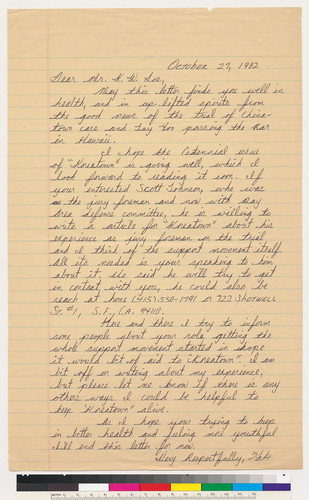 October 27, 1982
Dear Mr. K. W. Lee,
May this letter finds you well in
health, and in up lifted spirits from
the good news of the trial of China-
town case and Jay Yoo passing the Bar
in Hawaii.
I hope the Centennial issue
of "Koreatown" is going well, which I
look forward to reading it soon. If
your interested Scott Johnson, who was
the jury foreman and now with Bay
Area defense committee, he is willing to
write a article for "Koreatown" about his
experience as jury foreman in the trial,
and it third of the support movement itself.
All its needed is your speaking to him
about it. He said he will try to get
in contact with you, he could also be
reach at home (415) 550-1791 or 777 Shotwell
St. #1, S.F., CA. 94110.
Here and there I try to inform
some people about your role getting the
whole support movement started in hope
it would bit of aid to "Koreatown". I am
bit off on writing about my experience,
but please let me know if there is any
others ways I could be helpful to
keep "Koreatown" alive.
As I hope your trying to keep
in better health and feeling more youthful
I'll end this letter for now.
Very Respectfully,